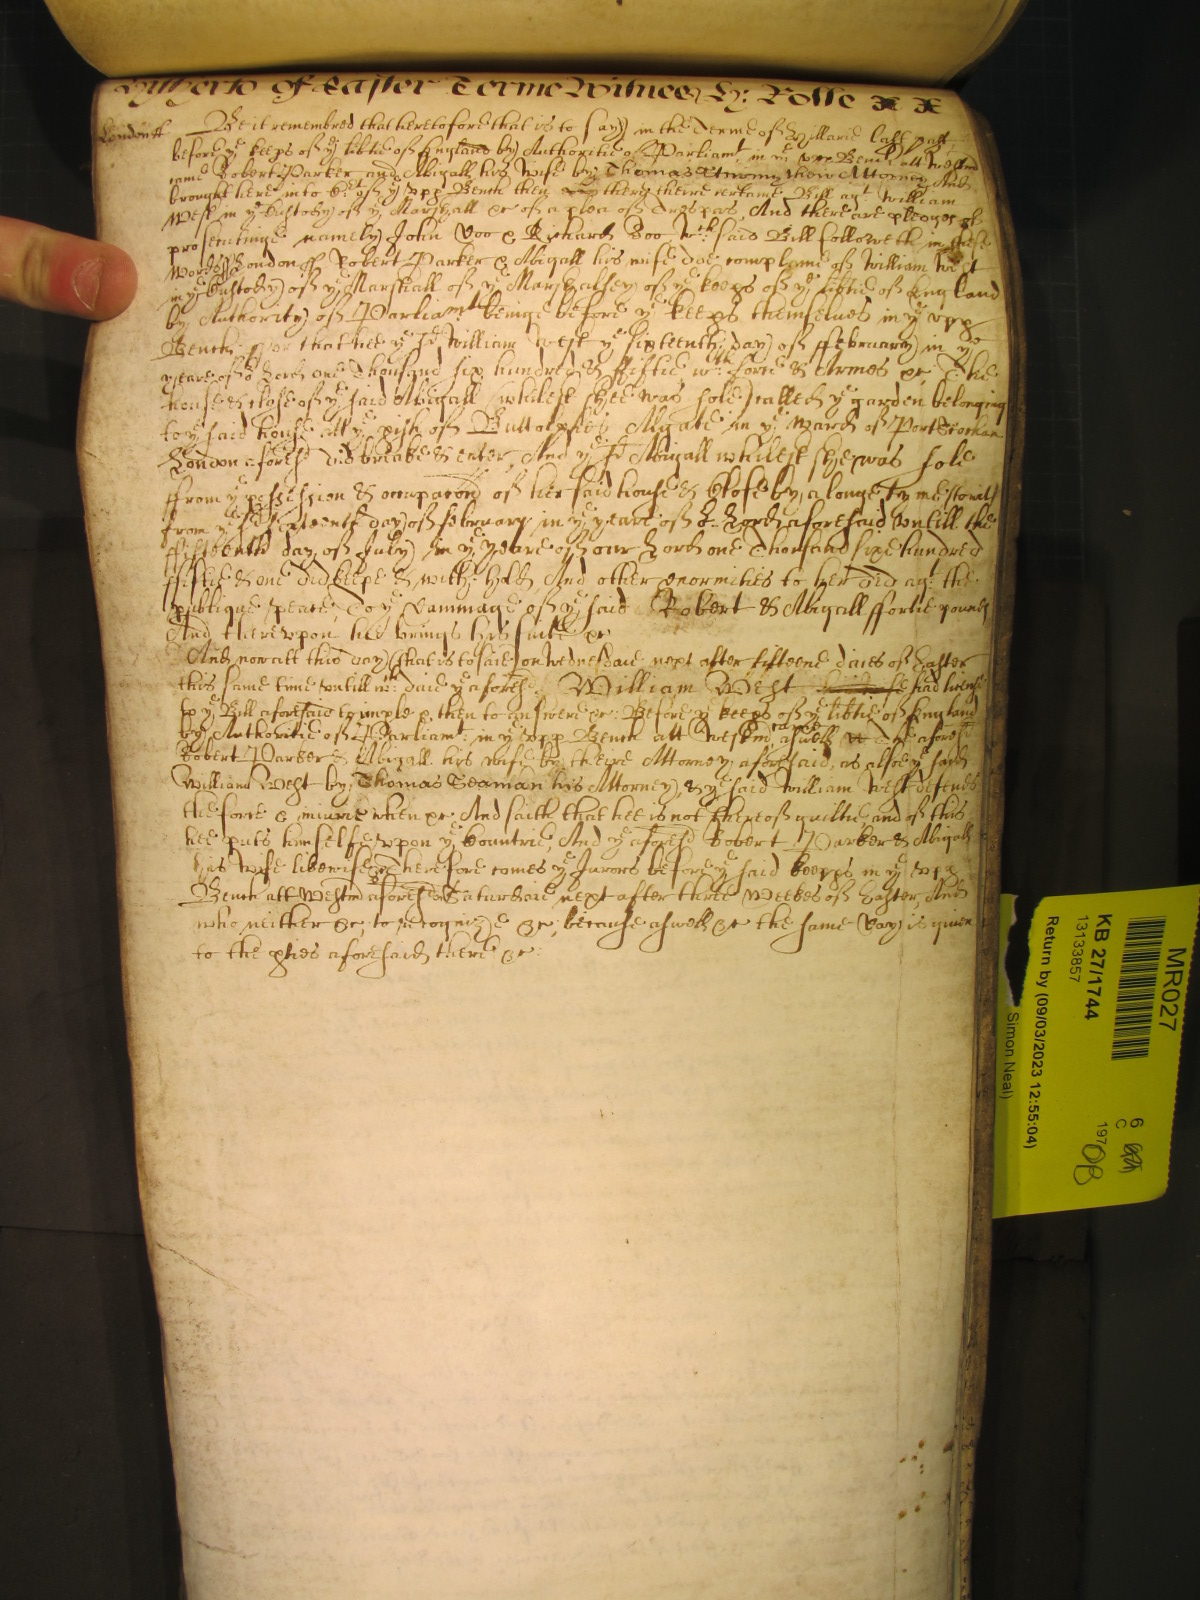 of Easter Terme Witnes H: Rolle
London ss Be it remembred that heretofore that is to say in the Terme of St Hillarie last past
before ye keeps of ye libtie of England by Authoritie of Parliamt in ye upp Bench att Westm
came Robert Parker and Abigall his wife by Thomas their Attorney And
brought here into Court of ye upp Bench then there theire certaine Bill agt William
West in ye Custody of ye Marshall &c of a plea of Trespas, And there are pledges of
prosecutinge namely John Doo & Richard Roo wch said Bill followeth in these
words ss London ss Robert Parker & Abigall his wife doe complaine of William West
in ye Custody of ye Marshall of ye Marshalsey of ye keeps of ye libtie of England
by Authority of Parliamt beinge before ye keeps themselves in ye upp
Bench; For that hee ye sd William West ye sixteenth day of ffebruary in ye
yeare of or Lord one Thousand six hundred & ffiftie wth force & Armes &c The
house & close of ye said Abigall (whilest shee was sole) called ye garden belonging
to ye said house att ye pish of Buttolphes Algate in ye Ward of Portsoken
London aforesd did breake & enter, And ye sd Abigall whilest she was sole
ffrom ye possession & occupacon of her said house & Close by a longe tyme (to witt)
from ye sd sixteenth day of february in ye yeare of or Lord aforesaid untill the
ffifteenth day of July in ye yeare of our Lord one Thousand sixe hundred
ffiftie & one did keepe & with: hold And other enormities to her did agt the
publique peace, To ye Dammage of ye said Robert & Abigall ffortie pounds
And thereupon hee brings his suite &c
And now att this day (that is to saie) on Wednesdaie next after fifteene daies of Easter
this same time untill wch daie ye aforesd William West had licence
to ye Bill aforesaid to imple & then to answere &c: Before ye keeps of ye libtie of England
by Authoritie of Parliamt in ye upp Bench att Westm came aswell The aforesd
Robert Parker & Abigall his wife by theire Attorney aforesaid, as alsoe ye said
William West by Thomas Seaman his Attorney, & ye said William West defends
the force & iniurie when &c And saith that hee is not thereof guiltie, and of this
hee puts himselfe upon ye Countrie, And ye aforesd Robert Parker & Abigall
his wife likewise &c Therefore comes ye Jurors before ye said keeps in ye upp
Bench att Westm aforesd on Saturdaie next after three Weekes of Easter, And
who neither &c, to recognize &c, because aswell &c the same Day is given
to the pties aforesaid there &c.
MR027
KB 27/1744
13133857
Return by (09/03/2023 12:55:04)
Simon Neal)
6
C
197